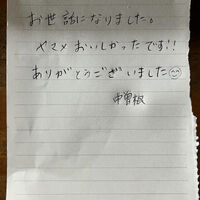 お世話になりました。
ヤマメおいしかったです!!
ありがとうございました☺